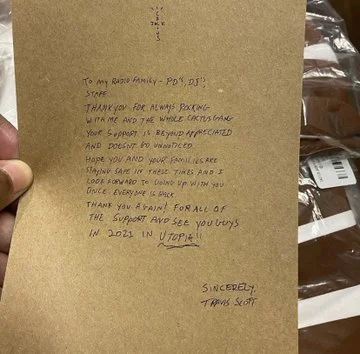 TO MY RADIO FAMILY - PD's, DJ's,
STAFF
THANK YOU FOR ALWAYS ROCKING
WITH ME AND THE WHOLE CACTUS GANG
YOUR SUPPORT IS BEYOND APPRECIATED
AND DOESNT GO UNNOTICED
HOPE YOU AND YOUR FAMILIES ARE
STAYING SAFE IN THESE TIMES AND I
LOOK FORWARD TO LINKING UP WITH YOU
ONCE EVERYONE IS BACK
THANK YOU AGAIN! FOR ALL OF
THE SUPPORT AND SEE YOU GUYS
IN 2021 IN UTOPIA!!
SINCERELY,
TRAVIS SCOTT